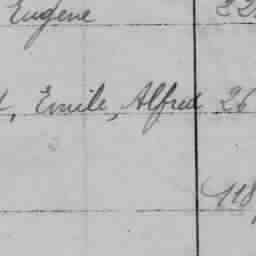 Eugène
Emile, Alfred 26
118